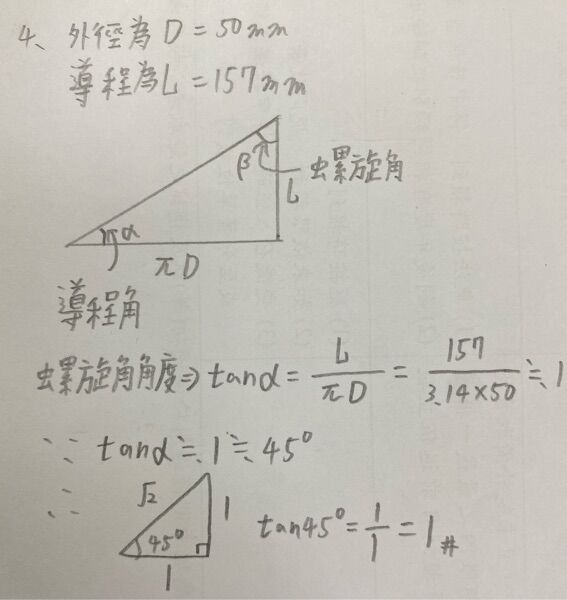 4、外徑為D=50mm
導程為L=157mm
β
L
螺旋角
α
πD
導程角
螺旋角角度⇒tanα=L/πD=157/3.14×50≒1
∵ tanα≒1≒45°
∴
√2
1
45°
1
tan45°=1/1=1#